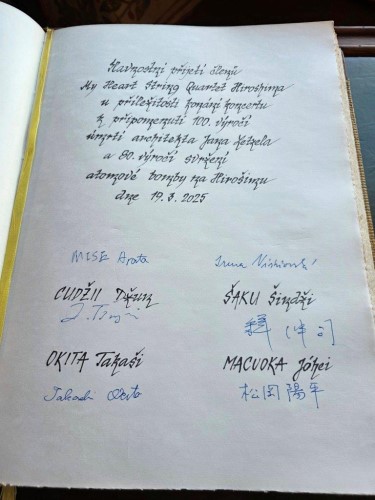 Slavnostní přijetí členů
My Heart String Quartet Hiroshima
u příležitosti konání koncertu
k připomenutí 100. výročí
úmrtí architekta Jana Letzela
a 80. výročí svržení
atomové bomby na Hirošimu
dne 19.3.2025
MISE Arata
CUDŽII Džun
ŠAKU Šindži
OKITA Takaši
MACUOKA Jóhei
Takashi Okita
松岡陽平